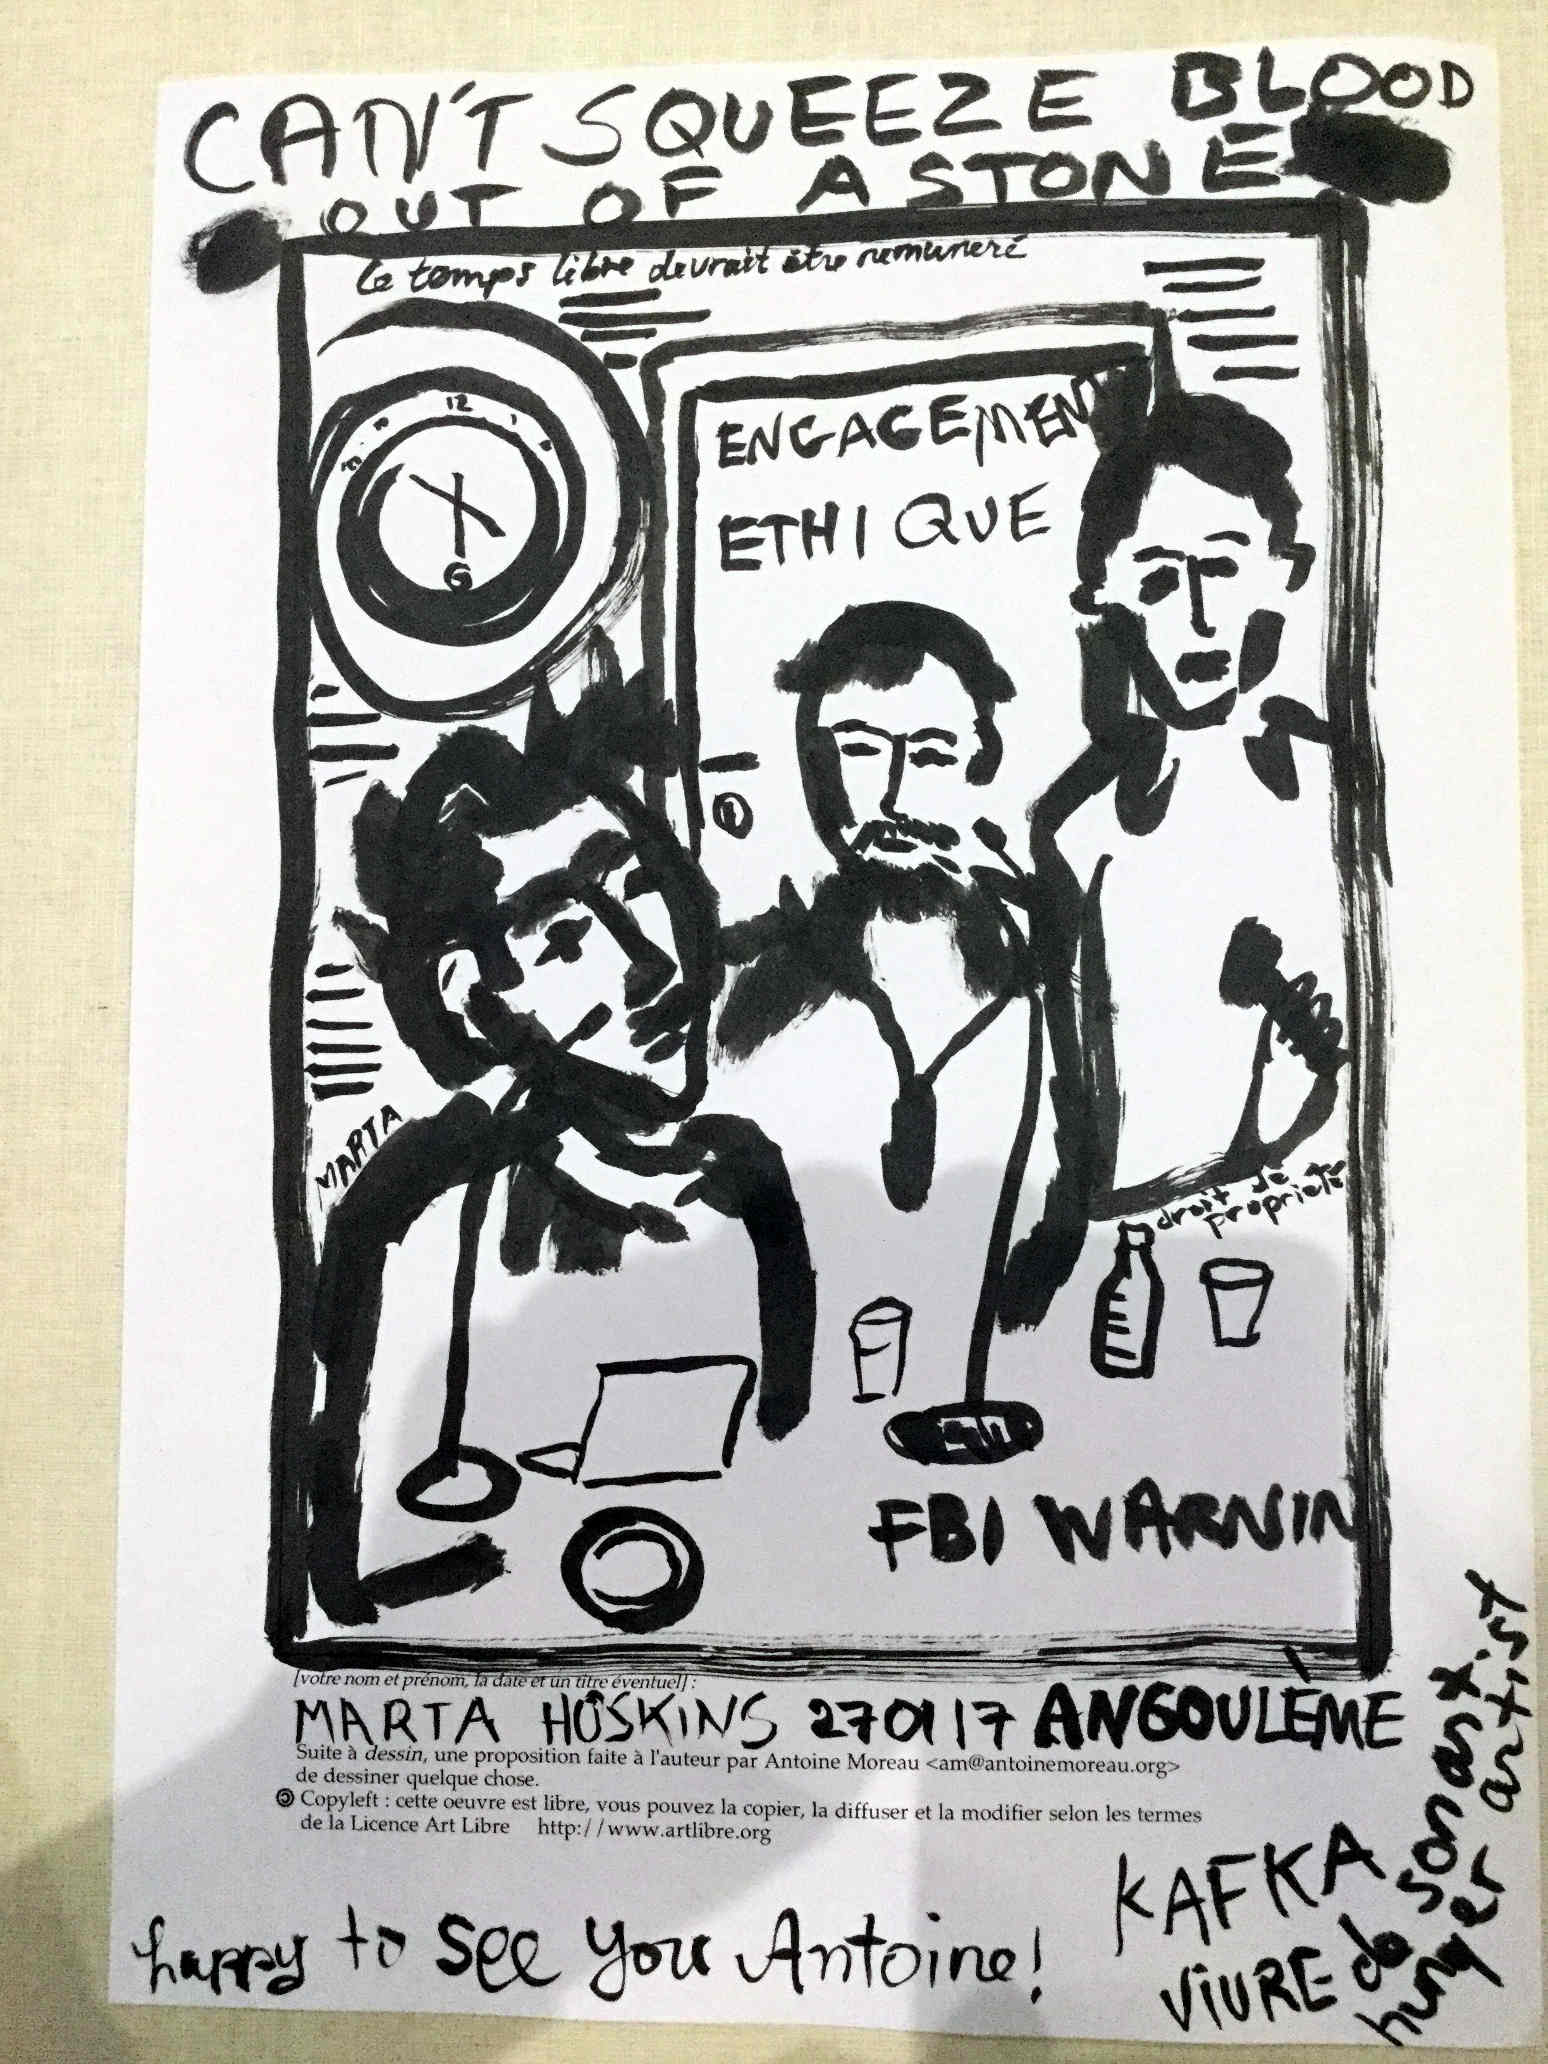 CAN'T SQUEEZE BLOOD
OUT OF A STONE
Le temps libre devrait être remuneré
12
ENGAGEMENT
ETHIQUE
6
MARTA
droit de
propriété
FBI WARNIN
[votre nom et prénom, la date et un titre éventuel] :
MARTA HOSKINS 270117 ANGOULÈME
Suite à dessin, une proposition faite à l'auteur par Antoine Moreau <am@antoinemoreau.org>
de dessiner quelque chose.
Copyleft : cette oeuvre est libre, vous pouvez la copier, la diffuser et la modifier selon les termes
de la Licence Art Libre http://www.artlibre.org
happy to see you Antoine!
KAFKA
VIVRE de son art.
hunger artist